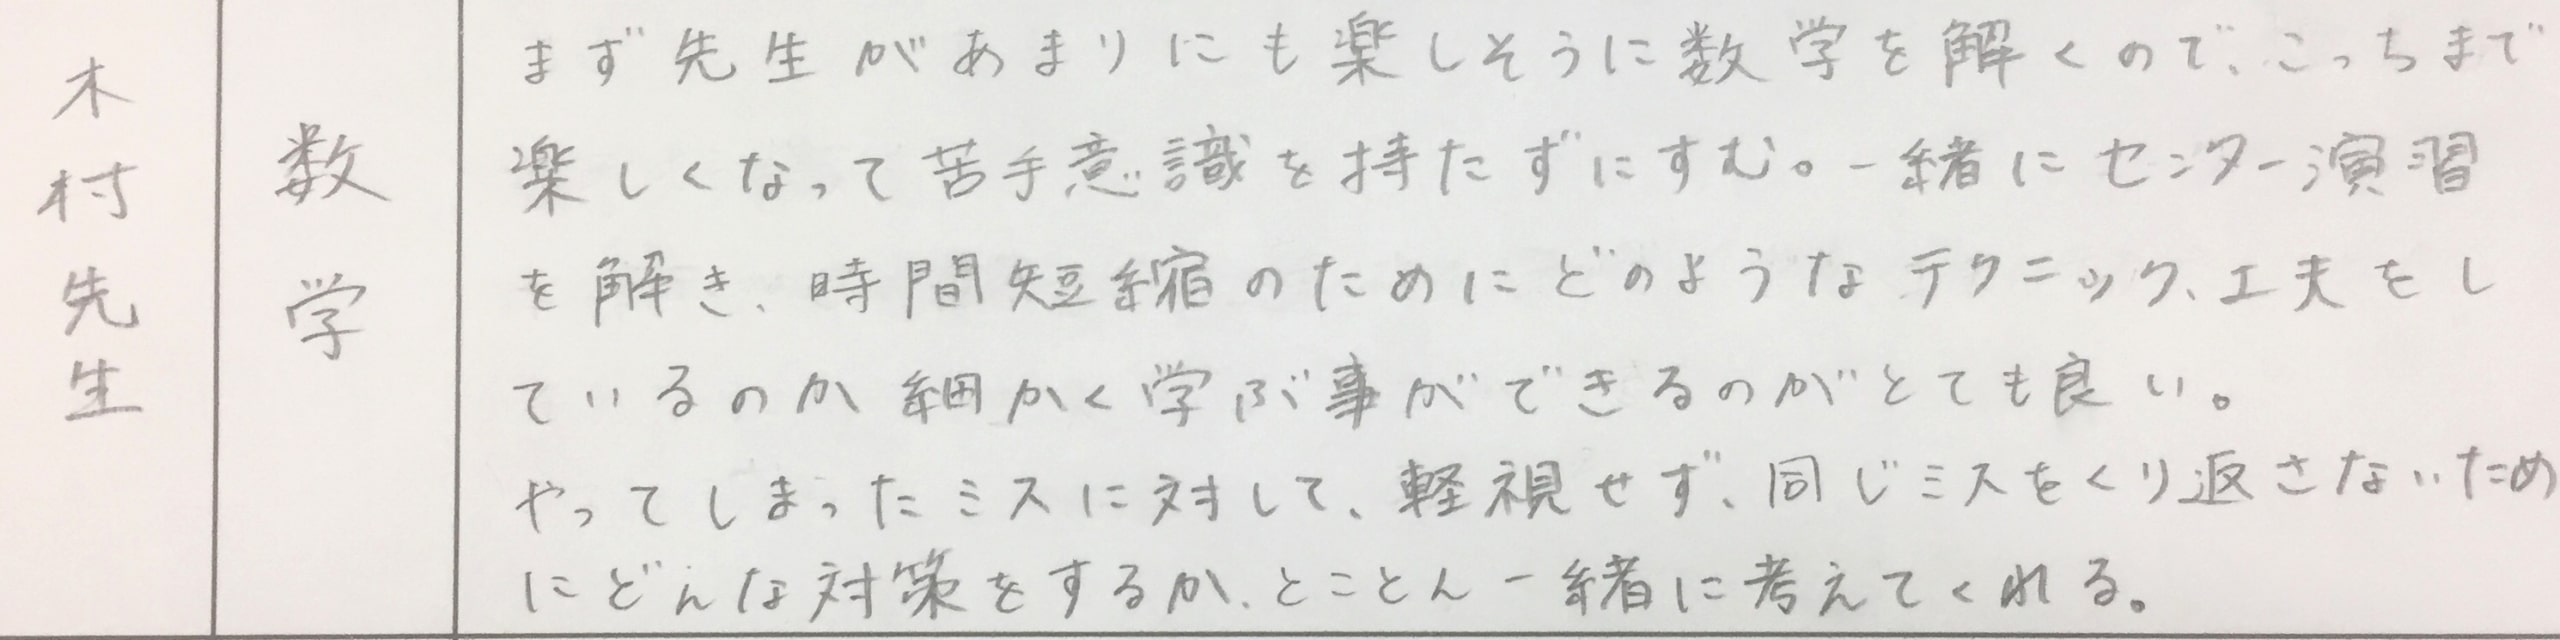 木村先生
数学
まず先生があまりにも楽しそうに数学を解くので、こっちまで
楽しくなって苦手意識を持たずにすむ。一緒にセンター演習
を解き、時間短縮のためにどのようなテクニック、工夫をし
ているのか細かく学ぶ事ができるのがとても良い。
やってしまったミスに対して、軽視せず、同じミスをくり返さないため
にどんな対策をするか、とことん一緒に考えてくれる。